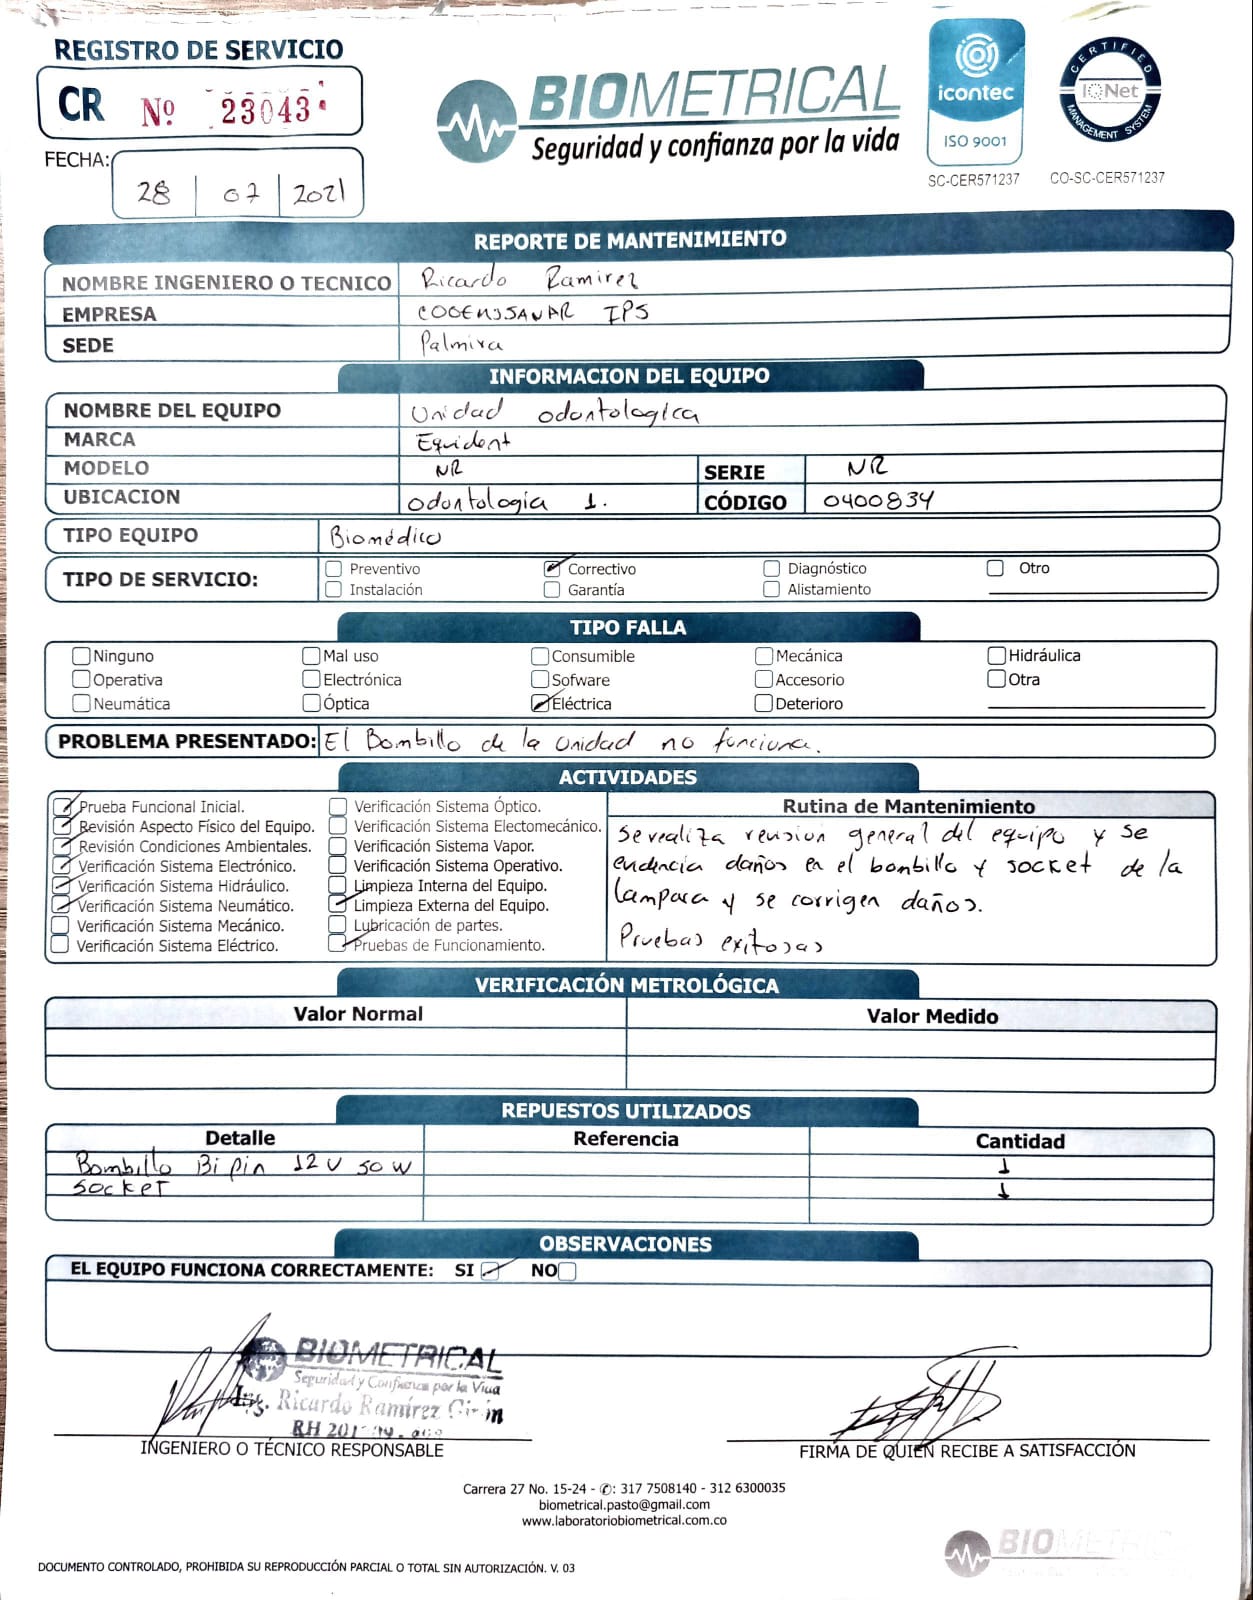 REGISTRO DE SERVICIO
CR Nº 23043
FECHA: 28 07 2021
BIOMETRICAL
Seguridad y confianza por la vida
icontec
ISO 9001
SC-CER571237
CERTIFIED
IQNet
MANAGEMENT SYSTEM
CO-SC-CER571237
REPORTE DE MANTENIMIENTO
NOMBRE INGENIERO O TECNICO Ricardo Ramirez
EMPRESA COOEMSSANAR IPS
SEDE Palmira
INFORMACION DEL EQUIPO
NOMBRE DEL EQUIPO Unidad odontologica
MARCA Equident
MODELO NR SERIE NR
UBICACION Odontologia 1. CÓDIGO 0400834
TIPO EQUIPO Biomédico
TIPO DE SERVICIO: Preventivo Correctivo Diagnóstico Otro
Instalación Garantía Alistamiento
TIPO FALLA
Ninguno Mal uso Consumible Mecánica Hidráulica
Operativa Electrónica Sofware Accesorio Otra
Neumática Óptica Eléctrica Deterioro
PROBLEMA PRESENTADO: El Bombillo de la unidad no funciona.
ACTIVIDADES
Prueba Funcional Inicial.
Revisión Aspecto Físico del Equipo.
Revisión Condiciones Ambientales.
Verificación Sistema Electrónico.
Verificación Sistema Hidráulico.
Verificación Sistema Neumático.
Verificación Sistema Mecánico.
Verificación Sistema Eléctrico.
Verificación Sistema Óptico.
Verificación Sistema Electomecánico.
Verificación Sistema Vapor.
Verificación Sistema Operativo.
Limpieza Interna del Equipo.
Limpieza Externa del Equipo.
Lubricación de partes.
Pruebas de Funcionamiento.
Rutina de Mantenimiento
se realiza revision general del equipo y se
evidencia daños en el bombillo y socket de la
lampara y se corrigen daños.
Pruebas exitosas
VERIFICACIÓN METROLÓGICA
Valor Normal Valor Medido
REPUESTOS UTILIZADOS
Detalle Referencia Cantidad
Bombillo Bi pin 12V 50W 1
socket 1
OBSERVACIONES
EL EQUIPO FUNCIONA CORRECTAMENTE: SI NO
BIOMETRICAL
Seguridad y Confianza por la Vida
Ing. Ricardo Ramírez
INGENIERO O TÉCNICO RESPONSABLE
FIRMA DE QUIEN RECIBE A SATISFACCIÓN
Carrera 27 No. 15-24 - ✆: 317 7508140 - 312 6300035
biometrical.pasto@gmail.com
www.laboratoriobiometrical.com.co
BIOMETRICAL
DOCUMENTO CONTROLADO, PROHIBIDA SU REPRODUCCIÓN PARCIAL O TOTAL SIN AUTORIZACIÓN. V. 03